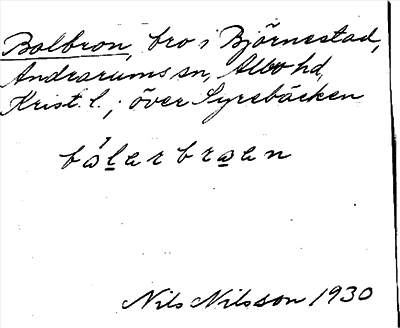 Balbron, bro i Björnestad,
Andrarums sn, Albo hd,
Krist. l.; över Lyrebäcken
Nils Nilsson 1930